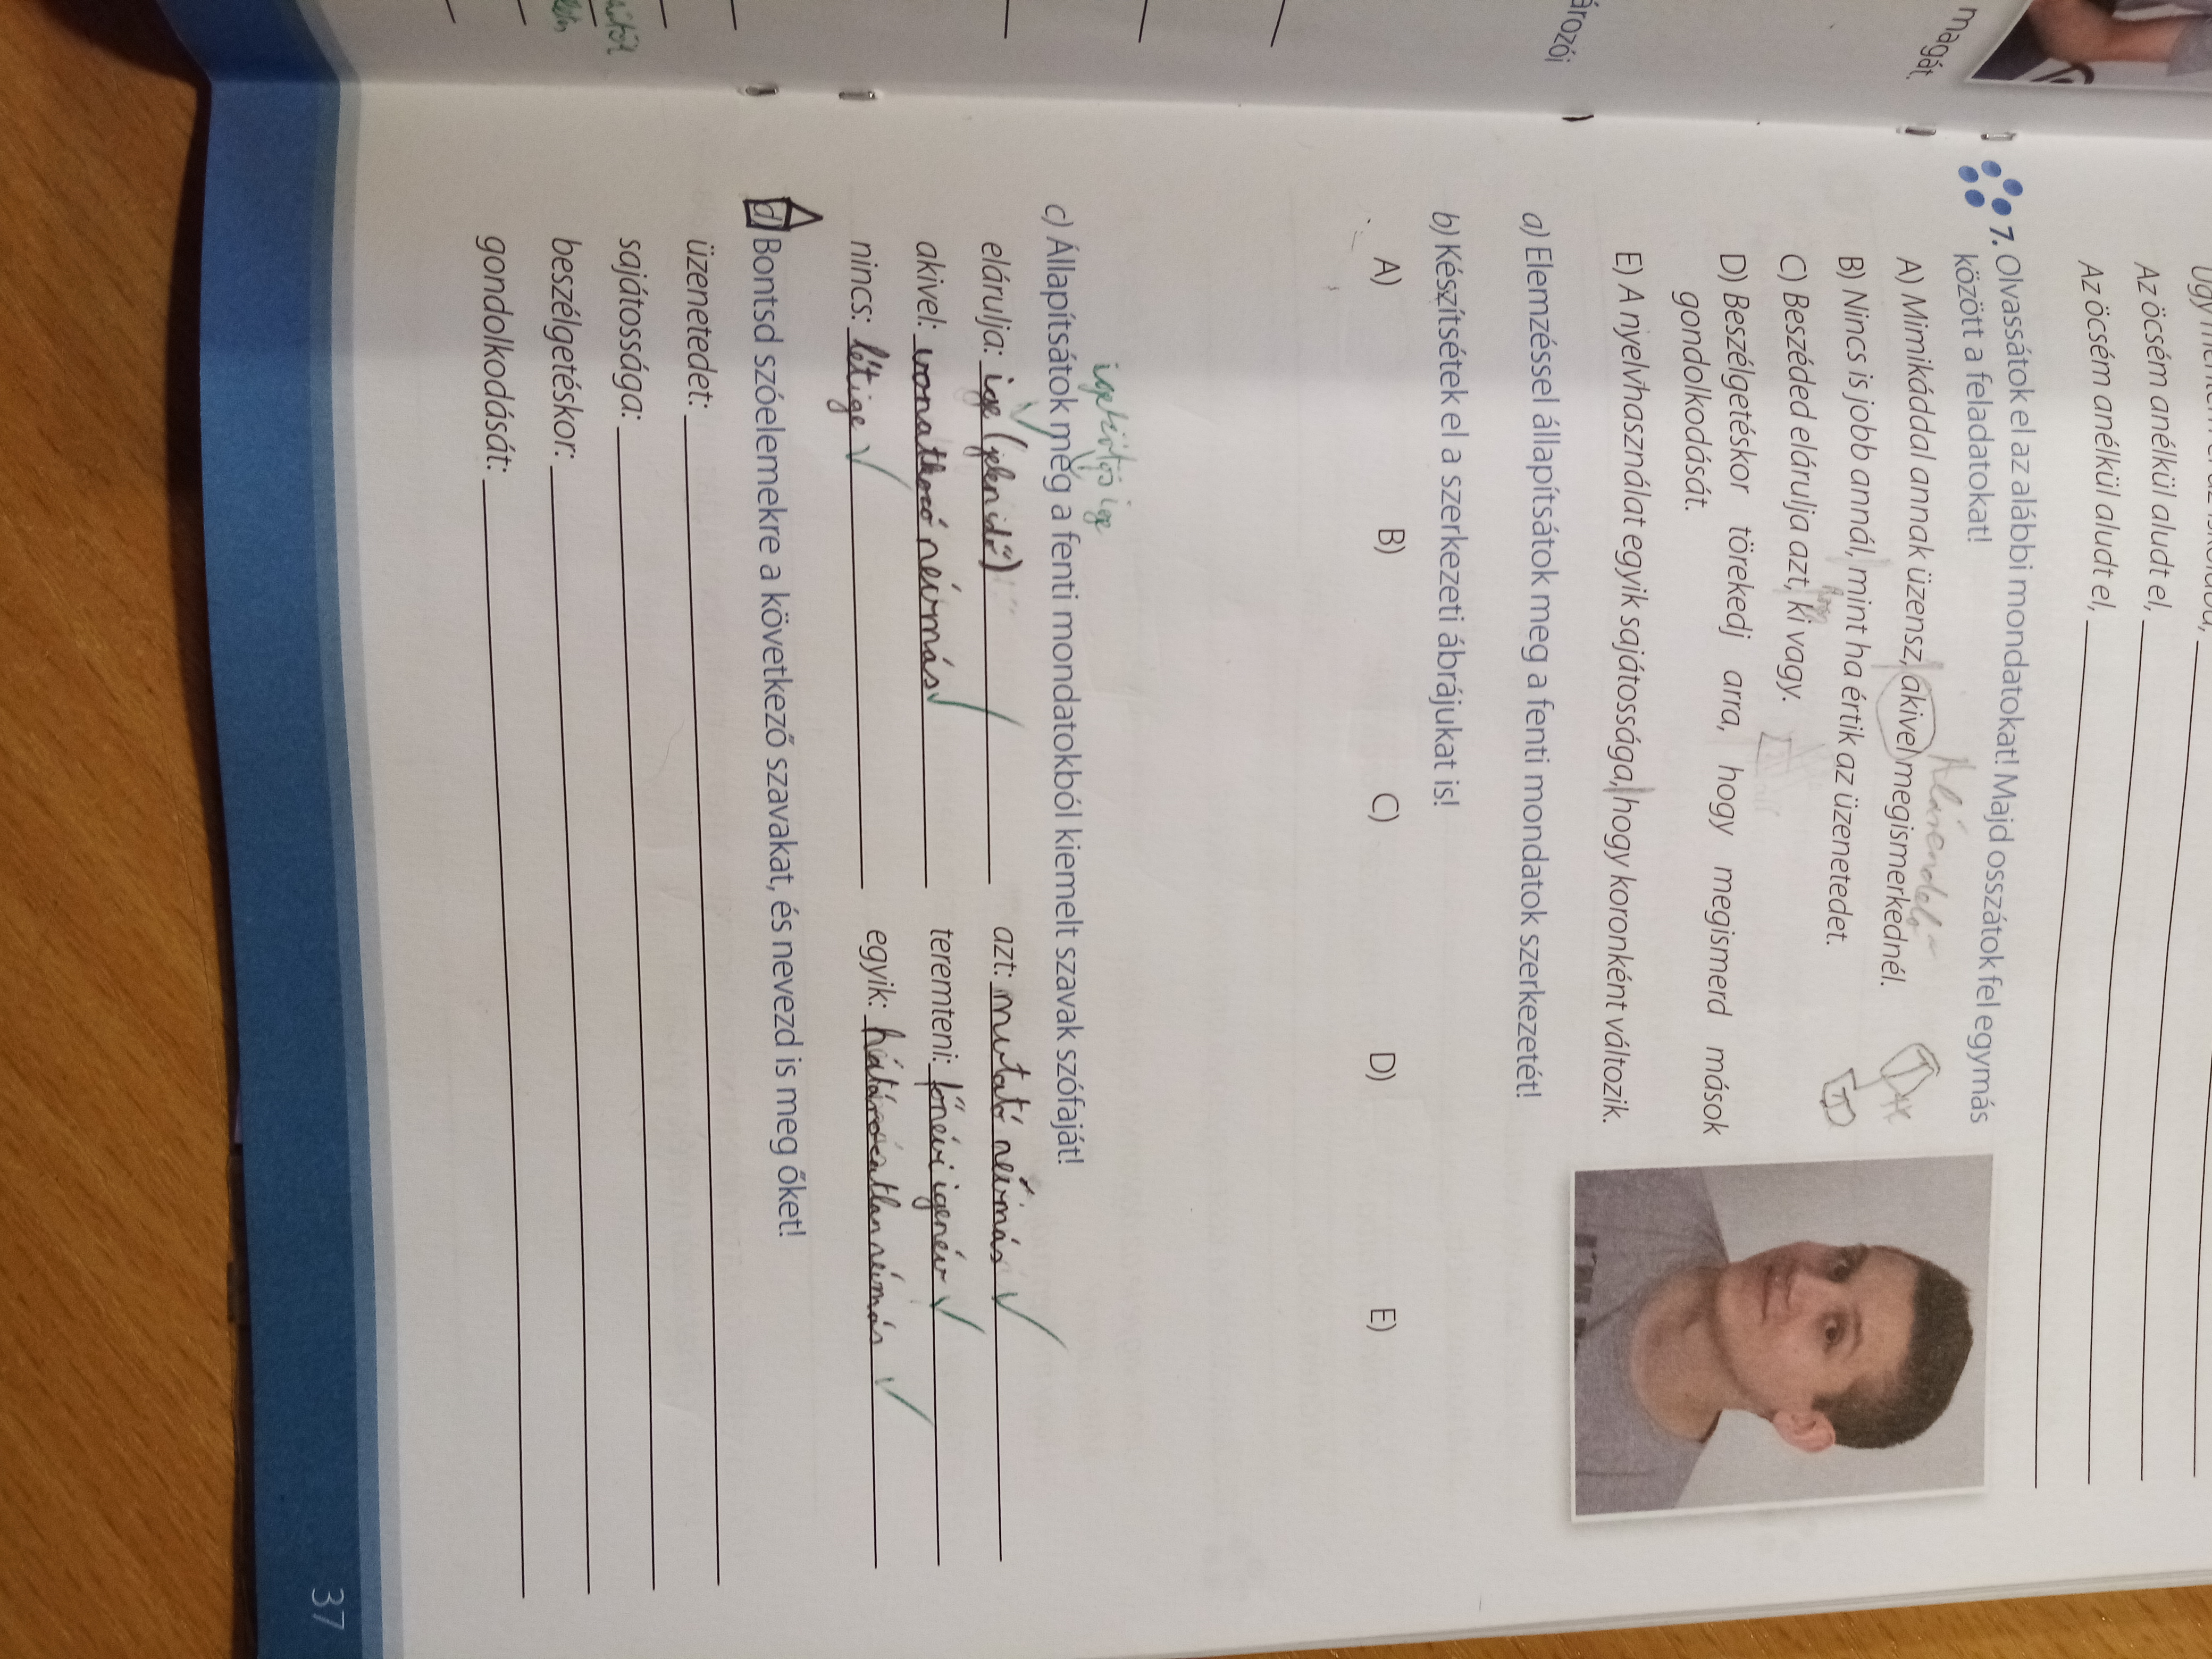 magát.
ározói
Az öcsém anélkül aludt el,
Az öcsém anélkül aludt el,
7. Olvassátok el az alábbi mondatokat! Majd osszátok fel egymás
között a feladatokat!
A) Mimikáddal annak üzensz, akivel megismerkednél.
B) Nincs is jobb annál, mint ha értik az üzenetedet.
C) Beszéded elárulja azt, ki vagy.
D) Beszélgetéskor törekedj arra, hogy megismerd mások
gondolkodását.
E) A nyelvhasználat egyik sajátossága, hogy koronként változik.
a) Elemzéssel állapítsátok meg a fenti mondatok szerkezetét!
b) Készítsétek el a szerkezeti ábrájukat is!
A) B) C) D) E)
igekötős ige
c) Állapítsátok meg a fenti mondatokból kiemelt szavak szófaját!
elárulja: ige (jelen idő) azt: mutató névmás
akivel: vonatkozó névmás teremteni: főnévi igenév
nincs: létige egyik: határozatlan névmás
d) Bontsd szóelemekre a következő szavakat, és nevezd is meg őket!
üzenetedet:
sajátossága:
beszélgetéskor:
gondolkodását:
37